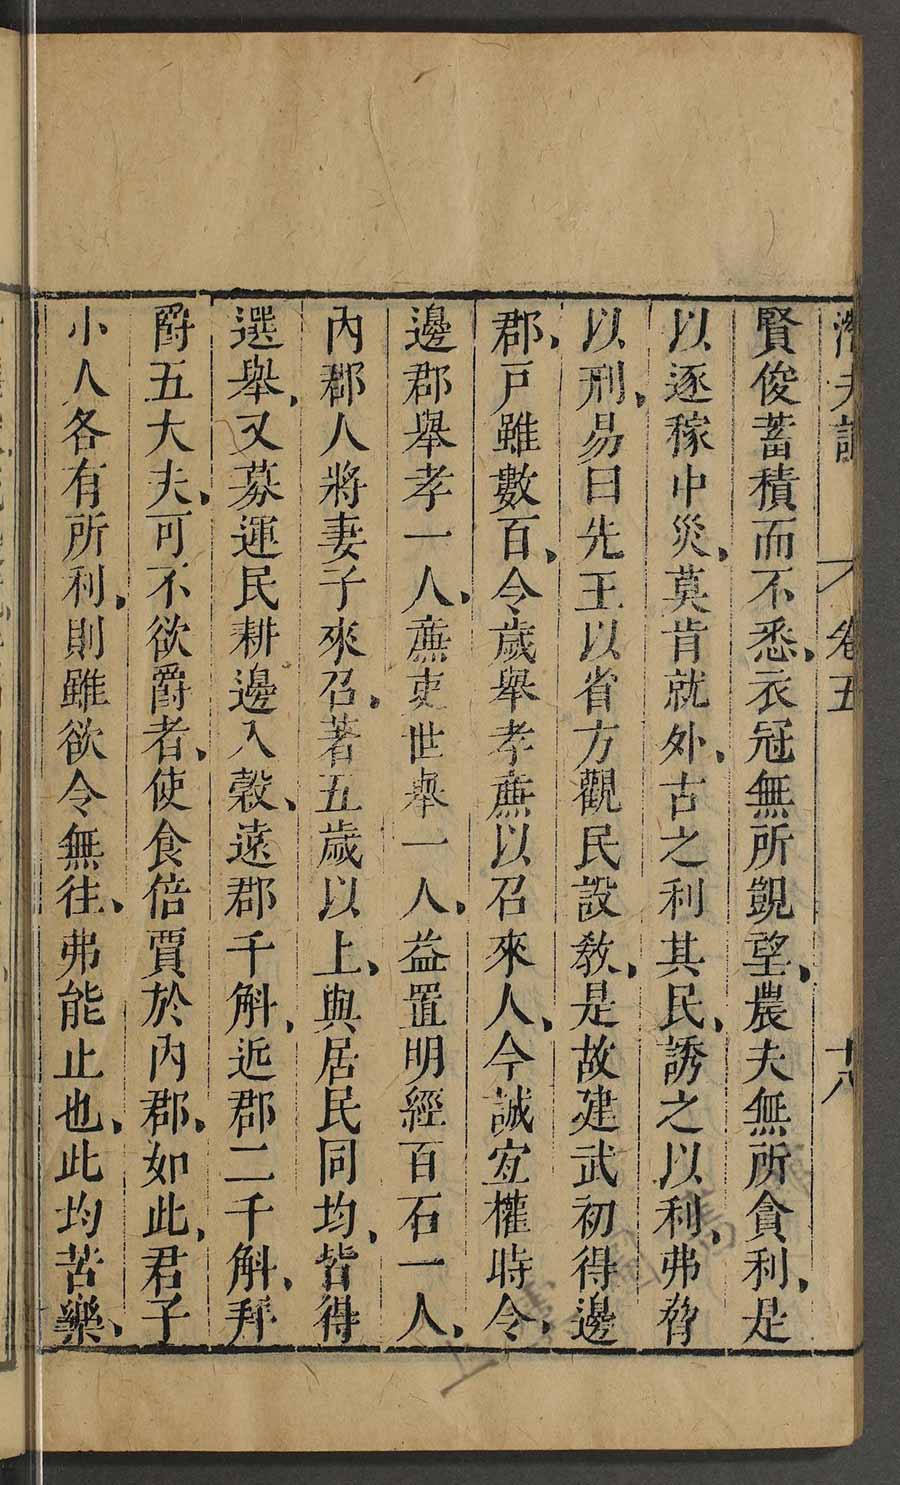 潛夫論 卷五 十八
賢俊蓄積而不悉、衣冠無所覬望、農夫無所貪利、是
以逐稼中災、莫肯就外、古之利其民、誘之以利、弗脅
以刑、易曰先王以省方觀民設敎、是故建武初得邊
郡、戸雖數百、令歲舉孝廉以召來人、今誠宜權時令、
邊郡舉孝一人、廉吏世舉一人、益置明經百石一人、
內郡人將妻子來召、著五歲以上、與居民同均、皆得
選舉、又募運民耕邊入榖、遠郡千斛、近郡二千斛、拜
爵五大夫、可不欲爵者、使食倍賈於內郡、如此、君子
小人各有所利、則雖欲令無往、弗能止也、此均苦樂、